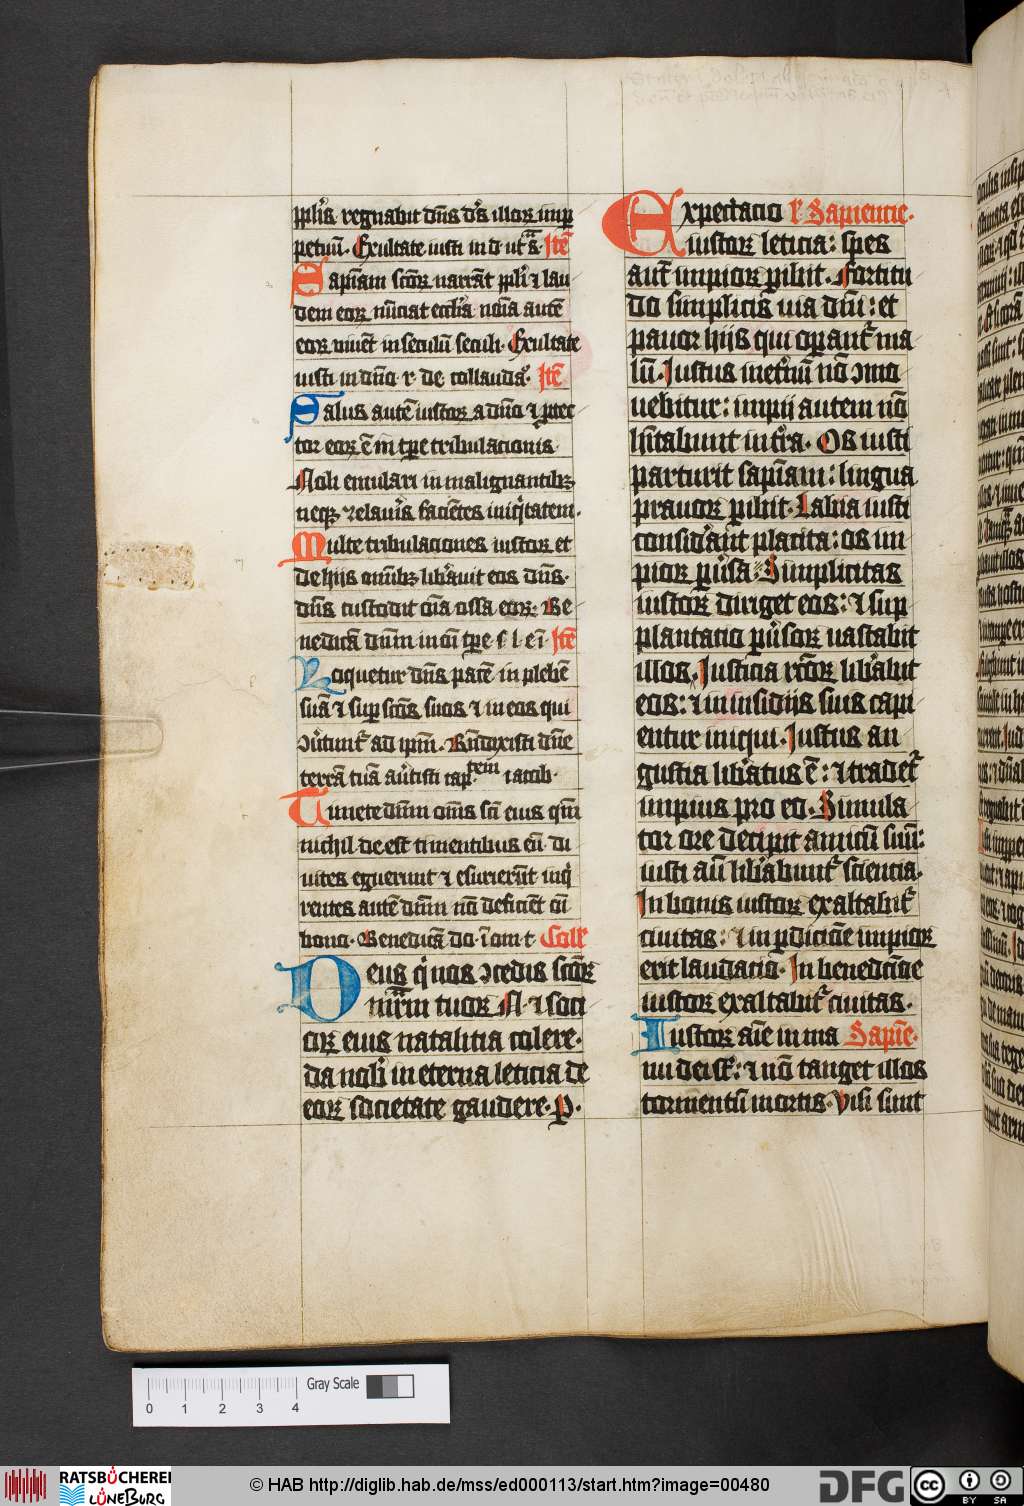 pplīs regnabit dn̄s d's illoꝝ imp
petuū. Exultate iusti in d ut s̄. Itē
Sapīam sctōꝝ narrāt ppli ⁊ lau
dem eoꝝ nūciat ecclīa noīa autē
eoꝝ viuēt in seculū seculi. Exultate
iusti in dn̄o r. de collauda°. Itē
Salus autē iustoꝝ a dn̄o ⁊ ꝓtec
tor eoꝝ ē in tꝑe tribulacionis.
Noli emulari in malignantibꝫ
neqꝫ zelaūis faciētes iniq̄tatem.
Multe tribulaciones iustoꝝ et
de hijs om̄ibꝫ libāuit eos dn̄s.
dn̄s custodit oīa ossa eoꝝ. Be
nedicā dnm in oī tꝑe s l e i Itē
Loquetur dn̄s pacē in plebē
suā ⁊ suꝑ sctōs suos ⁊ in eos qui
ↄūtunt' ad ipm̄. Bn̄dixisti dn̄e
terrā tuā aūtisti cap tem iacob.
Timete dnm om̄s sct̄i eius qm̄
nichil deest timentibus eū. Di
uites eguerunt ⁊ esurierūt inq̄
rentes autē dnm nō deficiēt oī
bono. Benedicā do. ī om t Coll'
Deus q̄ nos ↄcedis sctōꝝ
mr̄m tuoꝝ N. ⁊ soci
oꝝ eius natalitia colere.
da nob' in eterna leticia de
eoꝝ societate gaudere. P.
Expectacio l' Sapiencie.
iustoꝝ leticia: spes
aut' impioꝝ ꝑibit. Fortitu
do simplicis uia dn̄i: et
pauor hijs qui oꝑant' ma
lū. Iustus inet'nū nō ↄmo
uebitur: impij autem nō
hītabunt in t'ra. Os iusti
parturit sapīam: lingua
prauoꝝ ꝑibit. Labia iusti
considāut placita: os im
pioꝝ ꝑusa. Simplicitas
iustoꝝ diriget eos: ⁊ sup
plantacio ꝑūsoꝝ uastabit
illos. Iusticia rc̄oꝝ libābit
eos: ⁊ in insidijs suis capi
entur iniqui. Iustus an
gustia libātus ē: ⁊ tradet'
impius pro eo. Simula
tor ore decipit amicū suū:
iusti aū libābunt' sciencia.
In bonis iustoꝝ exaltabit'
ciuitas: ⁊ in ꝑdicōe impioꝝ
erit laudacio. In benedcōe
iustoꝝ exaltabit' ciuitas.
Iustoꝝ aīe in ma Sapīe.
nu dei st̄: ⁊ nō tanget illos
tormentū mortis. Visi sunt
Gray Scale
0 1 2 3 4
RATSBÜCHEREI LÜNEBURG
© HAB http://diglib.hab.de/mss/ed000113/start.htm?image=00480
DFG
cc BY SA